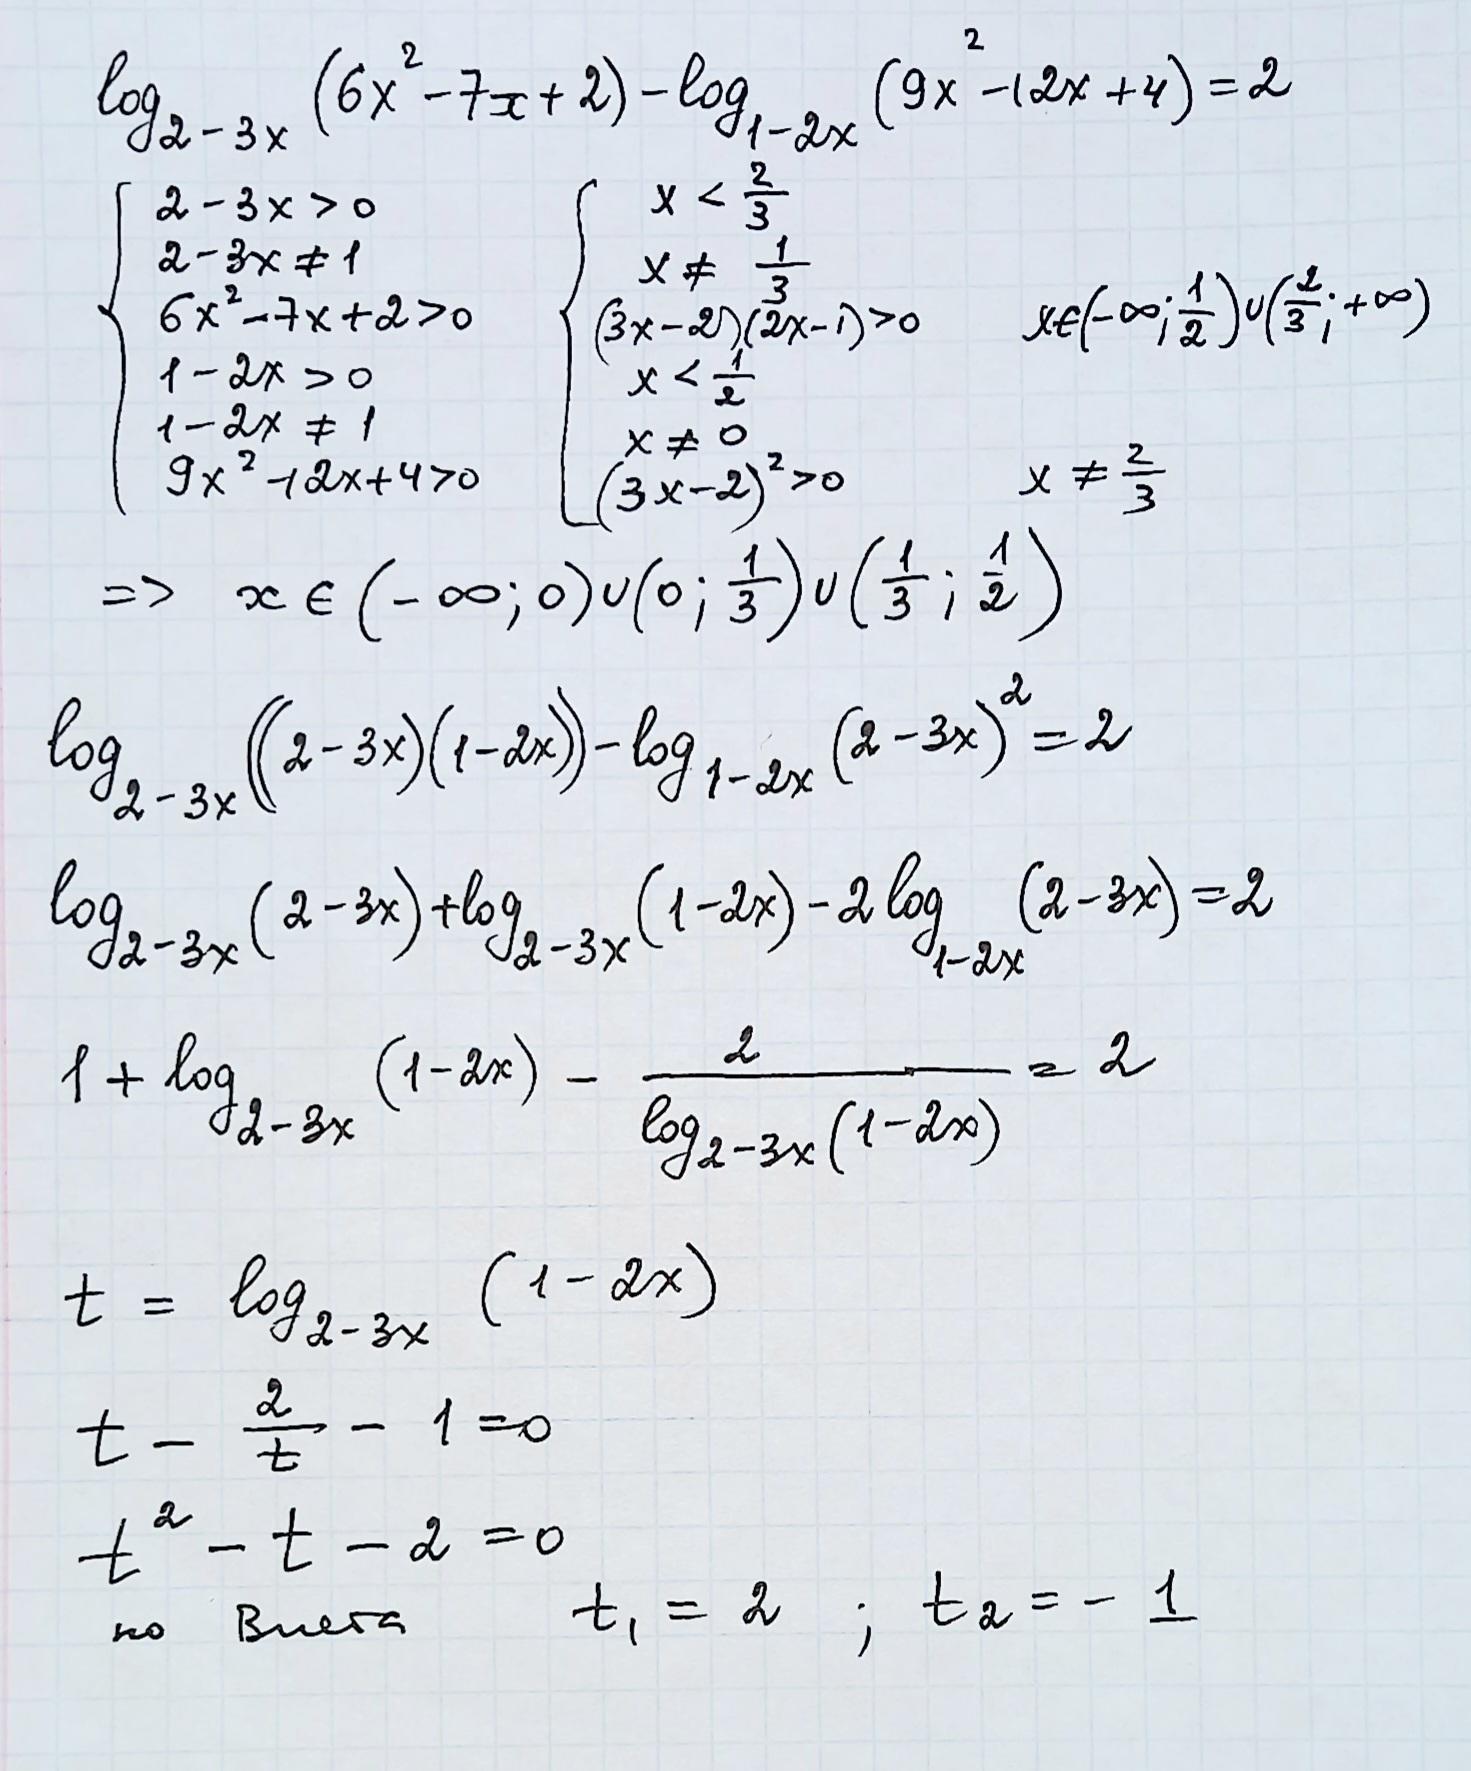 log₂₋₃ₓ (6x² - 7x + 2) - log₁₋₂ₓ (9x² - 12x + 4) = 2
{ 2 - 3x > 0 { x < 2/3
2 - 3x ≠ 1 x ≠ 1/3
6x² - 7x + 2 > 0 (3x - 2)(2x - 1) > 0 x ∈ (-∞; 1/2) ∪ (2/3; +∞)
1 - 2x > 0 x < 1/2
1 - 2x ≠ 1 x ≠ 0
9x² - 12x + 4 > 0 (3x - 2)² > 0 x ≠ 2/3
=> x ∈ (-∞; 0) ∪ (0; 1/3) ∪ (1/3; 1/2)
log₂₋₃ₓ ((2 - 3x)(1 - 2x)) - log₁₋₂ₓ (2 - 3x)² = 2
log₂₋₃ₓ (2 - 3x) + log₂₋₃ₓ (1 - 2x) - 2 log₁₋₂ₓ (2 - 3x) = 2
1 + log₂₋₃ₓ (1 - 2x) - 2/(log₂₋₃ₓ (1 - 2x)) = 2
t = log₂₋₃ₓ (1 - 2x)
t - 2/t - 1 = 0
t² - t - 2 = 0
по Виета t₁ = 2 ; t₂ = - 1